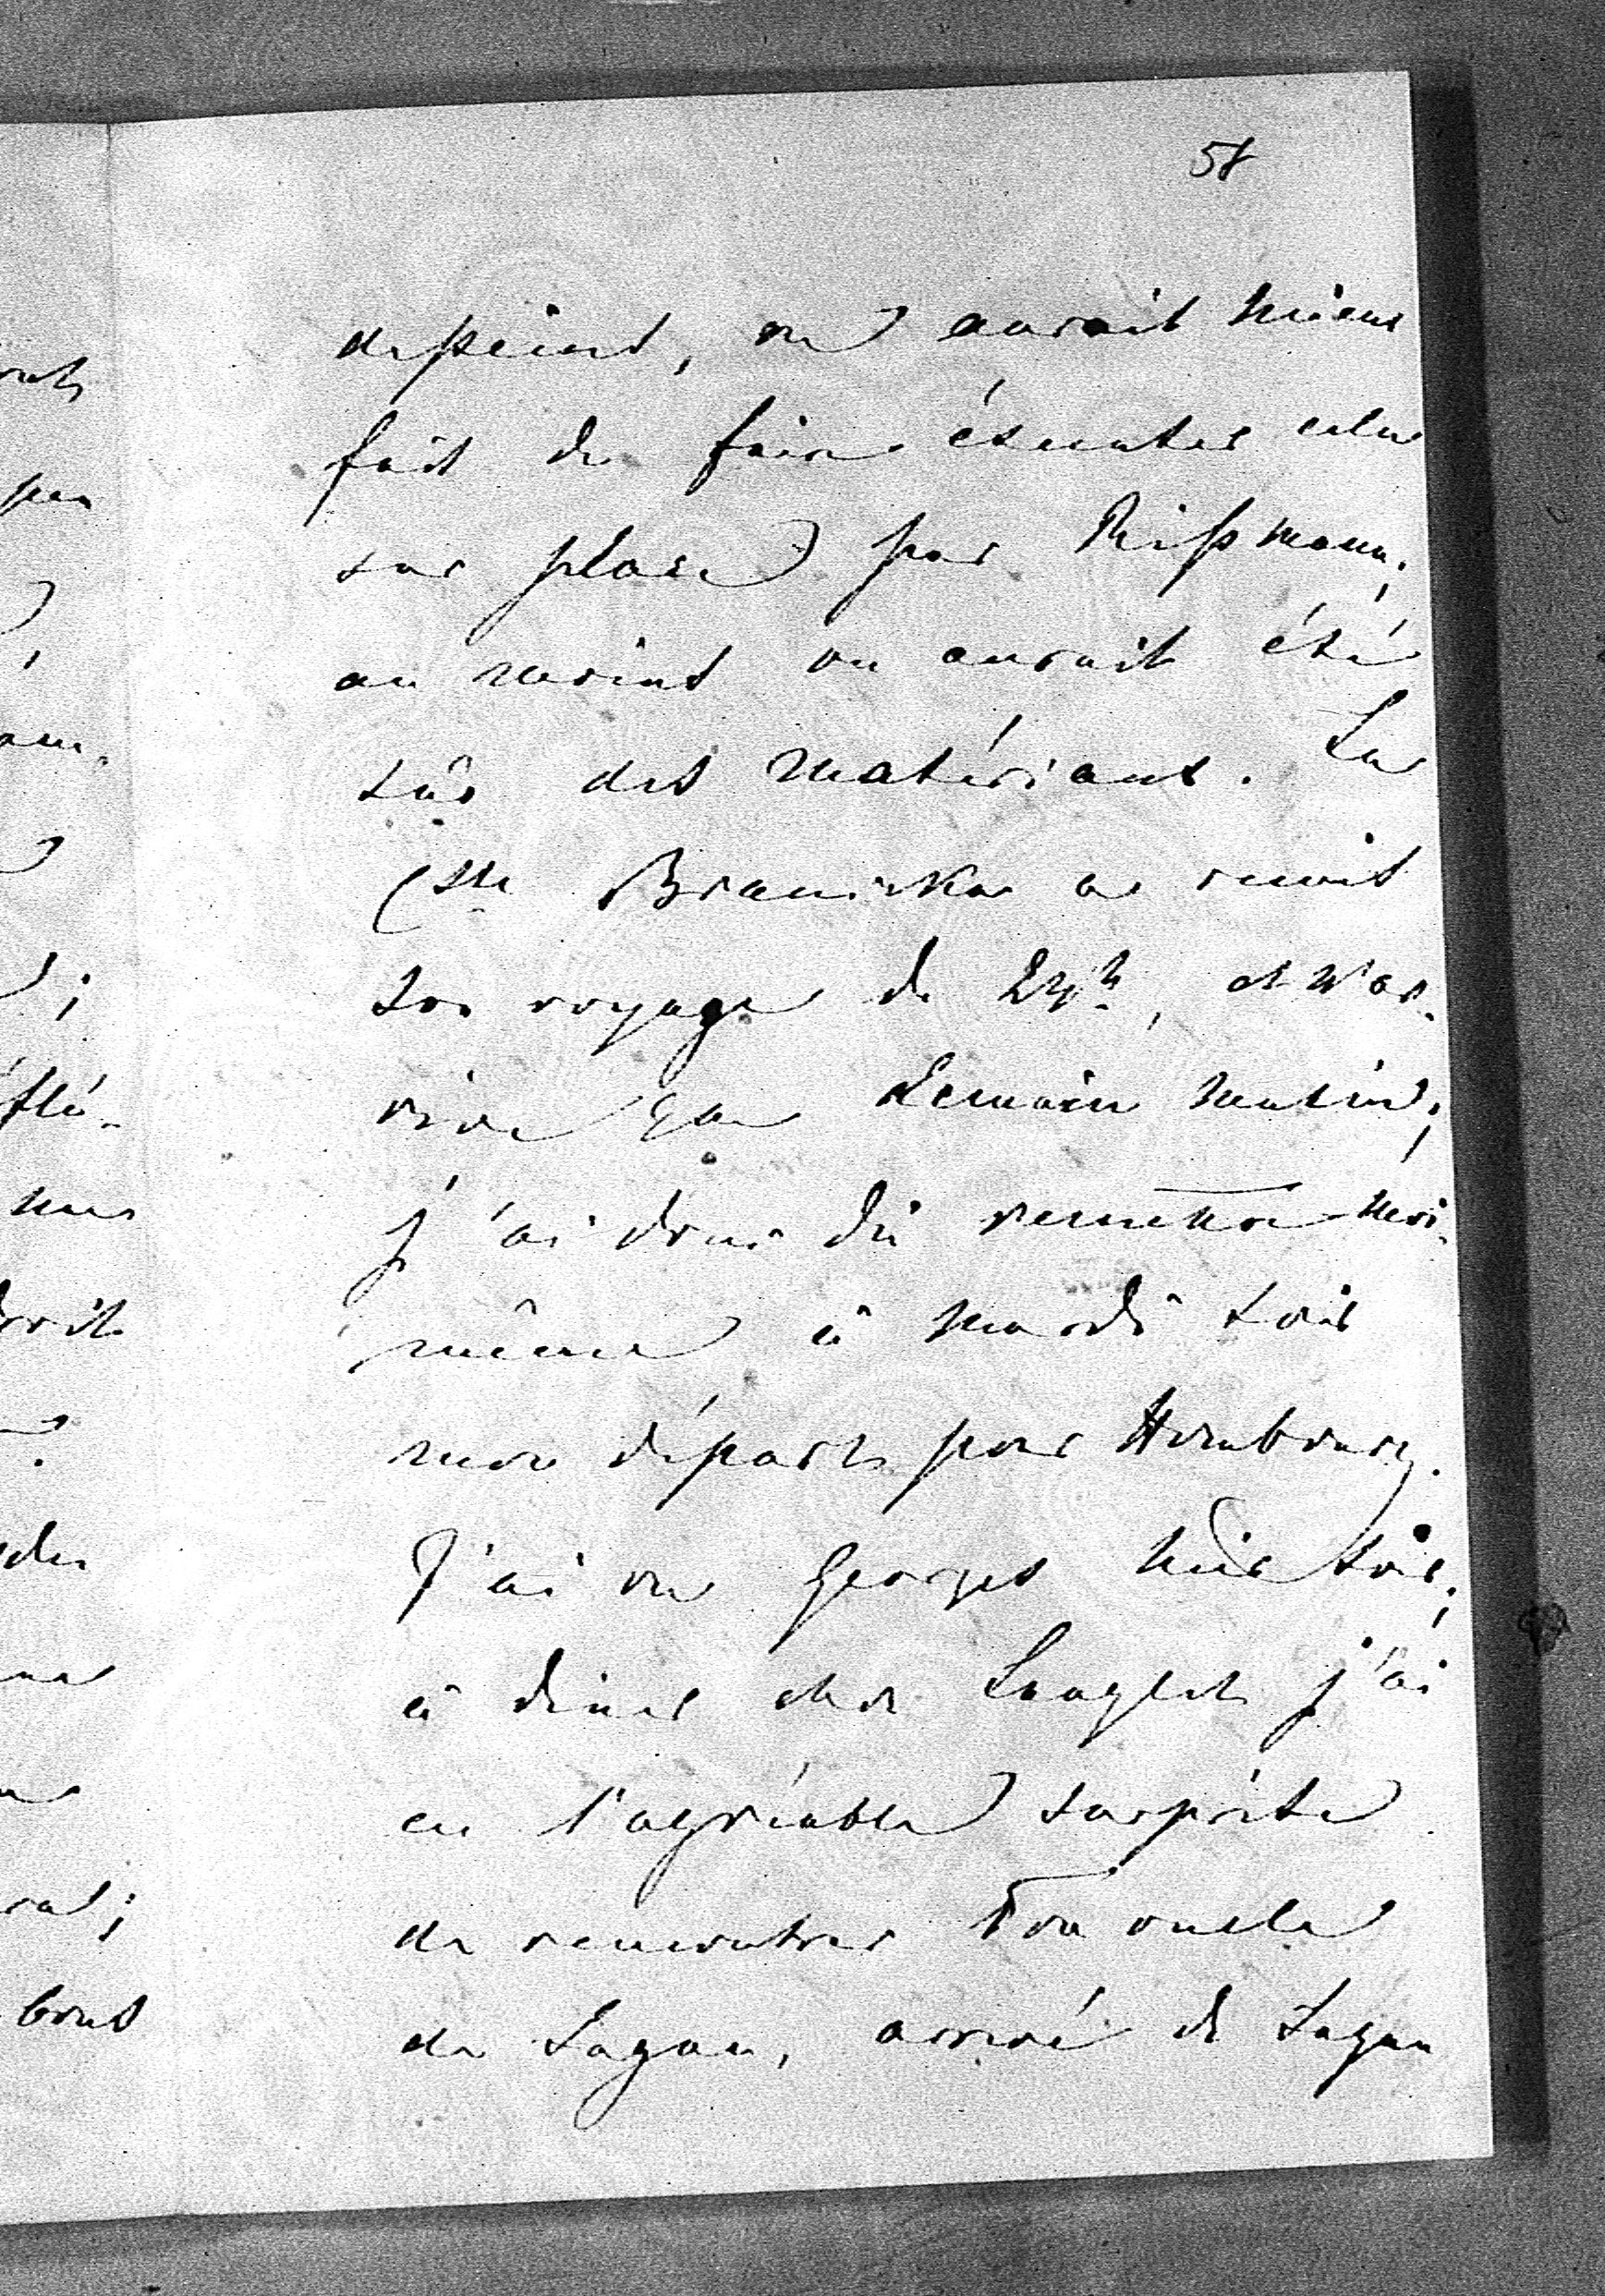 58
depeint, on aurait mieux
fait de faire éxecuter cela
sur place par Rißmann;
au moins on aurait été
sûr des matériaux. La
Ctsse Branicka a remit
son voyage de 24h, et n'ar-
rive que demain matin;
j'ai donc dû remettre moi-
même à mardi soir
mon départ pour Hombourg.
J'ai vu Georges hier soir;
à diner chez Langlet j'ai
eu l'agréable surprise
de rencontrer Ton oncle
de Sagan, arrivé de Sagan